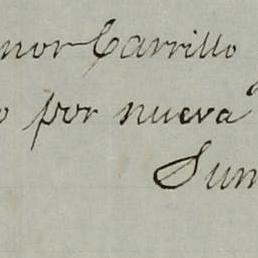 nor Carrillo
o por nueva
Sum